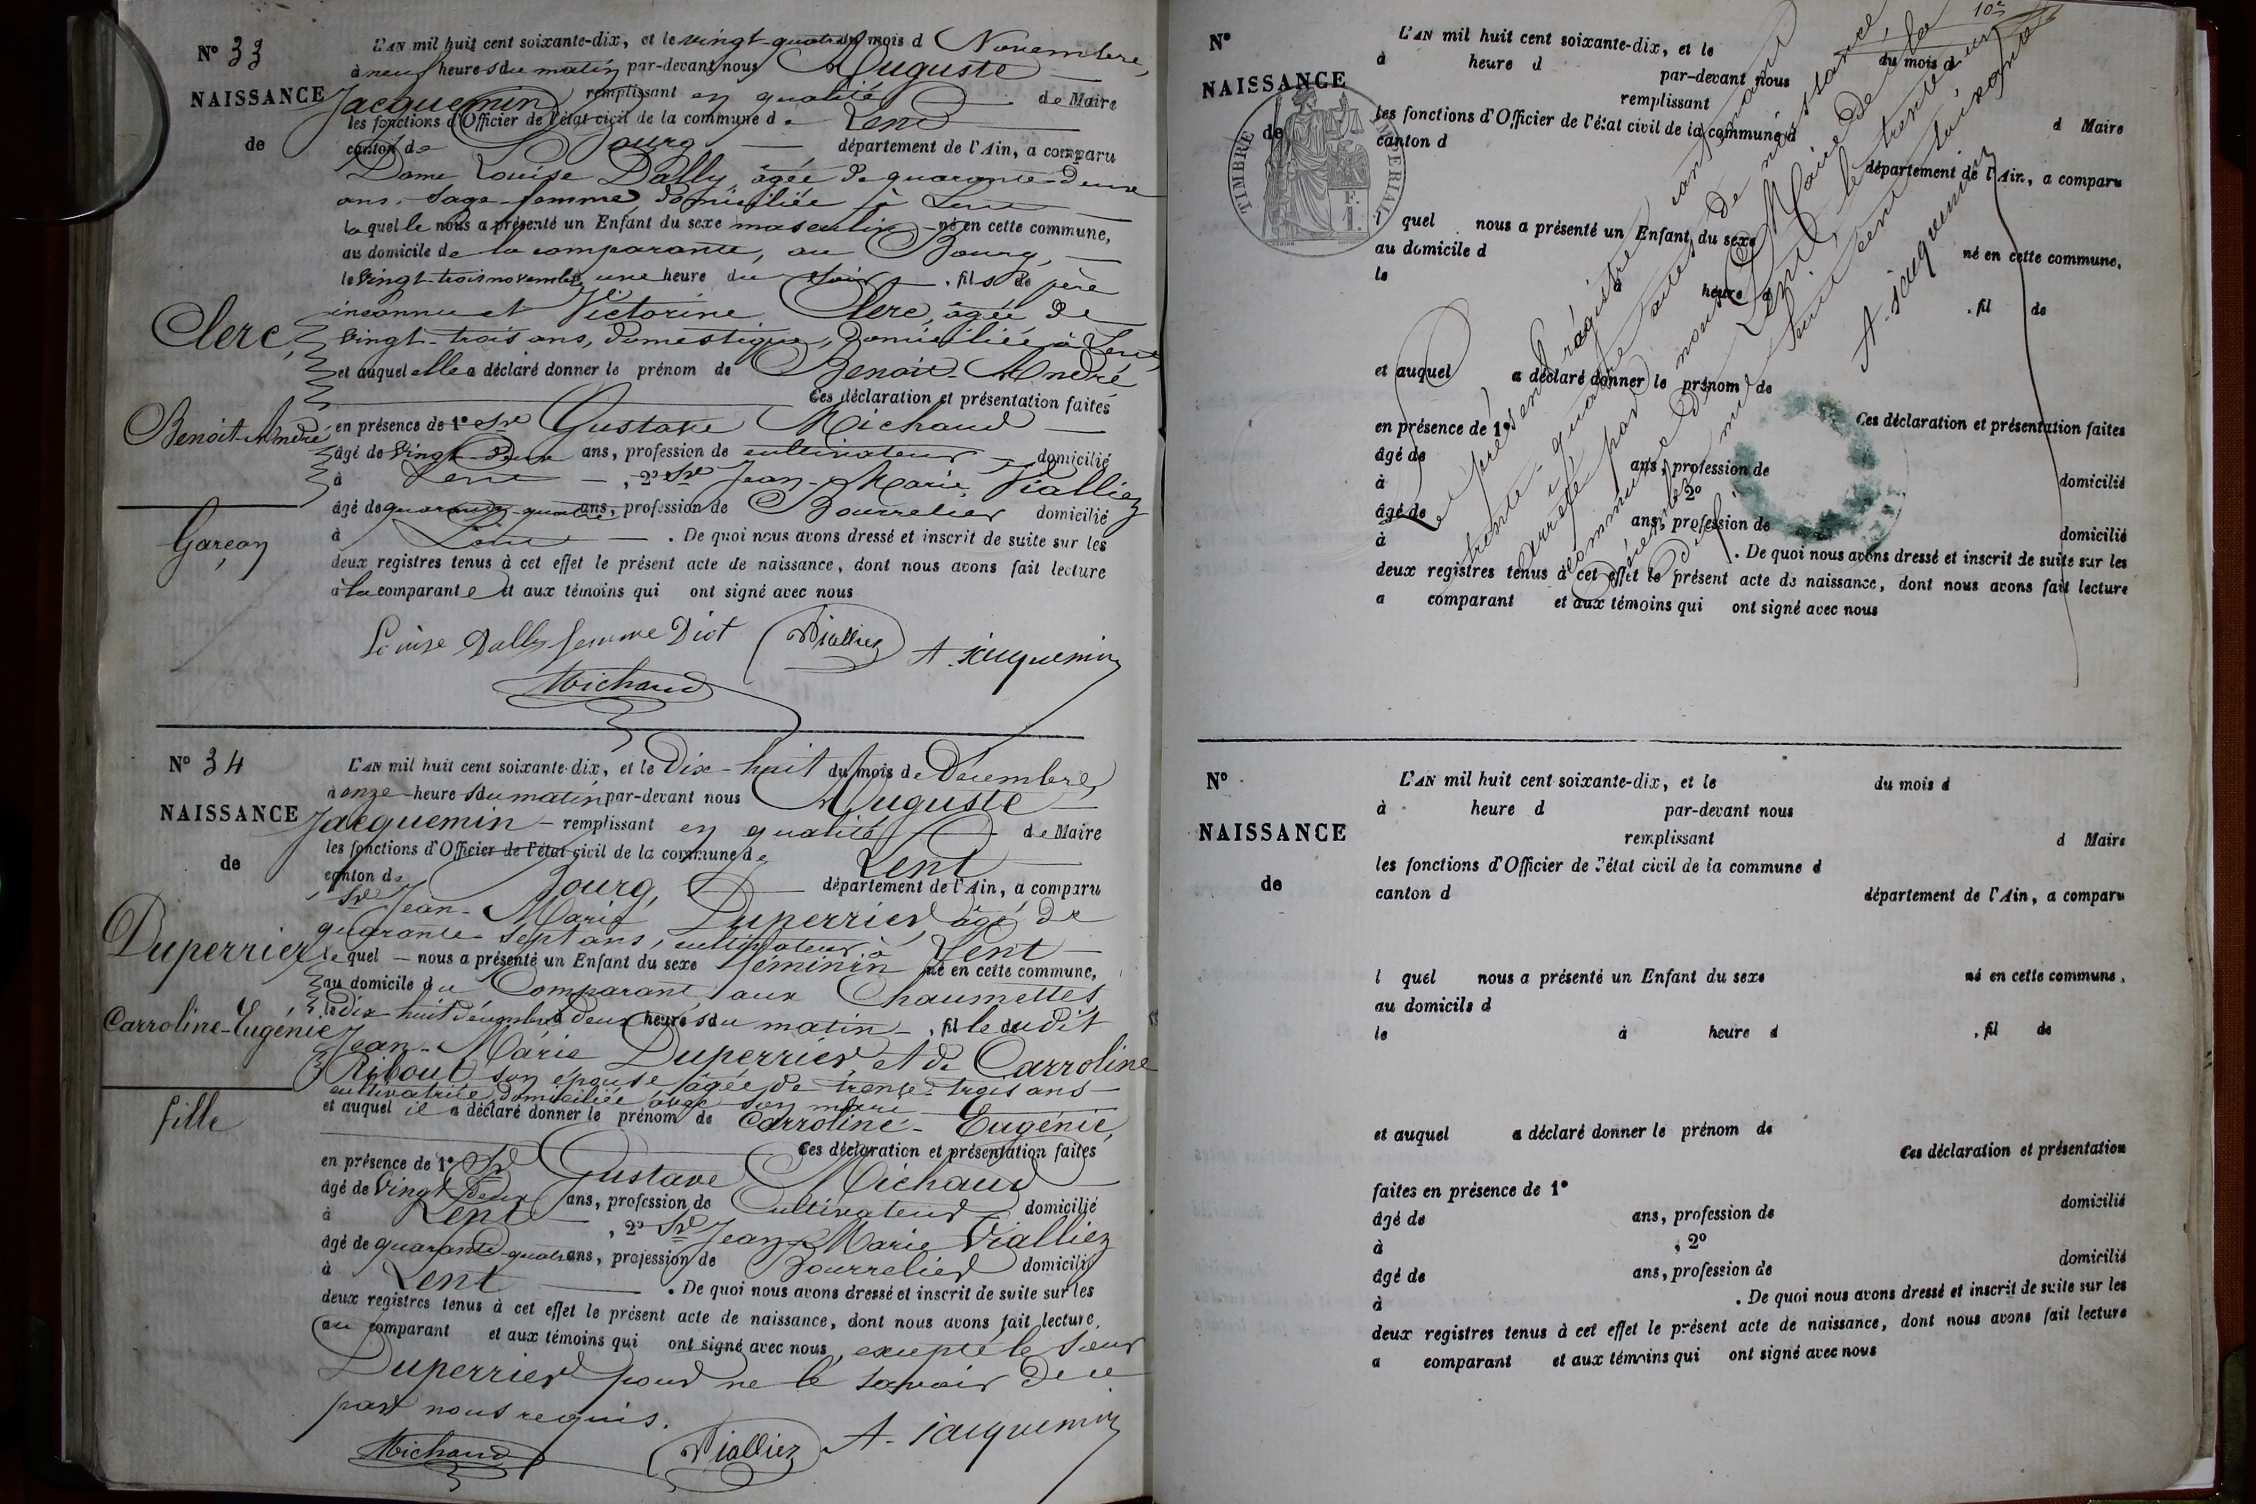 N° 33
NAISSANCE
de
Clerc,
Benoit-André
Garçon
L'AN mil huit cent soixante-dix, et le vingt-quatre du mois d Novembre,
à neuf heures du matin par-devant nous Auguste
Jacquemin remplissant en qualité de Maire
les fonctions d'Officier de l'état civil de la commune de Lent
canton de Bourg département de l'Ain, a comparu
Dame Louise Dally, âgée de quarante-deux
ans, sage-femme domiciliée à Lent
laquelle nous a présenté un Enfant du sexe masculin né en cette commune,
au domicile de la comparante, au Bourg,
le vingt-trois novembre à une heure du soir, fils de père
inconnu et Victorine Clerc, âgée de
vingt-trois ans, domestique, domiciliée à Lent,
et auquel elle a déclaré donner le prénom de Benoit-André
Ces déclaration et présentation faites
en présence de 1° Sr Gustave Michaud
âgé de vingt-deux ans, profession de cultivateur domicilié
à Lent, 2° Sr Jean-Marie Vialliez
âgé de quarante-quatre ans, profession de Bourrelier domicilié
à Lent. De quoi nous avons dressé et inscrit de suite sur les
deux registres tenus à cet effet le présent acte de naissance, dont nous avons fait lecture
à la comparante et aux témoins qui ont signé avec nous
Louise Dally femme Diot Vialliez A. Jacquemin
Michaud
N° 34
NAISSANCE
de
Duperrier
Carroline-Eugénie
fille
L'AN mil huit cent soixante-dix, et le Dix-huit du mois de Décembre,
à onze heures du matin par-devant nous Auguste
Jacquemin remplissant en qualité de Maire
les fonctions d'Officier de l'état civil de la commune de Lent
canton de Bourg, département de l'Ain, a comparu
Sr Jean-Marie Duperrier, âgé de
quarante-sept ans, cultivateur à Lent
lequel nous a présenté un Enfant du sexe féminin né en cette commune,
au domicile du Comparant aux Chaumettes
le dix-huit décembre à deux heures du matin, fille dudit
Jean-Marie Duperrier et de Carroline
Ribout son épouse âgée de trente-trois ans
cultivatrice, domiciliée avec son mari
et auquel il a déclaré donner le prénom de Carroline-Eugénie,
Ces déclaration et présentation faites
en présence de 1° Sr Gustave Michaud
âgé de vingt-deux ans, profession de Cultivateur domicilié
à Lent, 2° Sr Jean-Marie Vialliez
âgé de quarante-quatre ans, profession de Bourrelier domicilié
à Lent. De quoi nous avons dressé et inscrit de suite sur les
deux registres tenus à cet effet le présent acte de naissance, dont nous avons fait lecture
au comparant et aux témoins qui ont signé avec nous, excepté le sieur
Duperrier pour ne le savoir de ce
part nous requis.
Michaud Vialliez A. Jacquemin
N°
NAISSANCE
de
TIMBRE IMPERIAL
F.
1.
L'AN mil huit cent soixante-dix, et le du mois d
à heure d par-devant nous
remplissant d Maire
les fonctions d'Officier de l'état civil de la commune d
canton d département de l'Ain, a comparu
l quel nous a présenté un Enfant du sexe né en cette commune,
au domicile d
le à heure d , fil de
et auquel a déclaré donner le prénom de
Ces déclaration et présentation faites
en présence de 1°
âgé de ans, profession de domicilié
à , 2°
âgé de ans, profession de domicilié
à . De quoi nous avons dressé et inscrit de suite sur les
deux registres tenus à cet effet le présent acte de naissance, dont nous avons fait lecture
a comparant et aux témoins qui ont signé avec nous
Le présent régistre contenant
trente-quatre actes de naissance,
arrêté par nous Maire de la
commune de Lent, le trente-un
Décembre mil huit cent soixante
dix.
A. Jacquemin
N°
NAISSANCE
de
L'AN mil huit cent soixante-dix, et le du mois d
à heure d par-devant nous
remplissant d Maire
les fonctions d'Officier de l'état civil de la commune d
canton d département de l'Ain, a comparu
l quel nous a présenté un Enfant du sexe né en cette commune,
au domicile d
le à heure d , fil de
et auquel a déclaré donner le prénom de
Ces déclaration et présentation
faites en présence de 1°
âgé de ans, profession de domicilié
à , 2°
âgé de ans, profession de domicilié
à . De quoi nous avons dressé et inscrit de suite sur les
deux registres tenus à cet effet le présent acte de naissance, dont nous avons fait lecture
a comparant et aux témoins qui ont signé avec nous